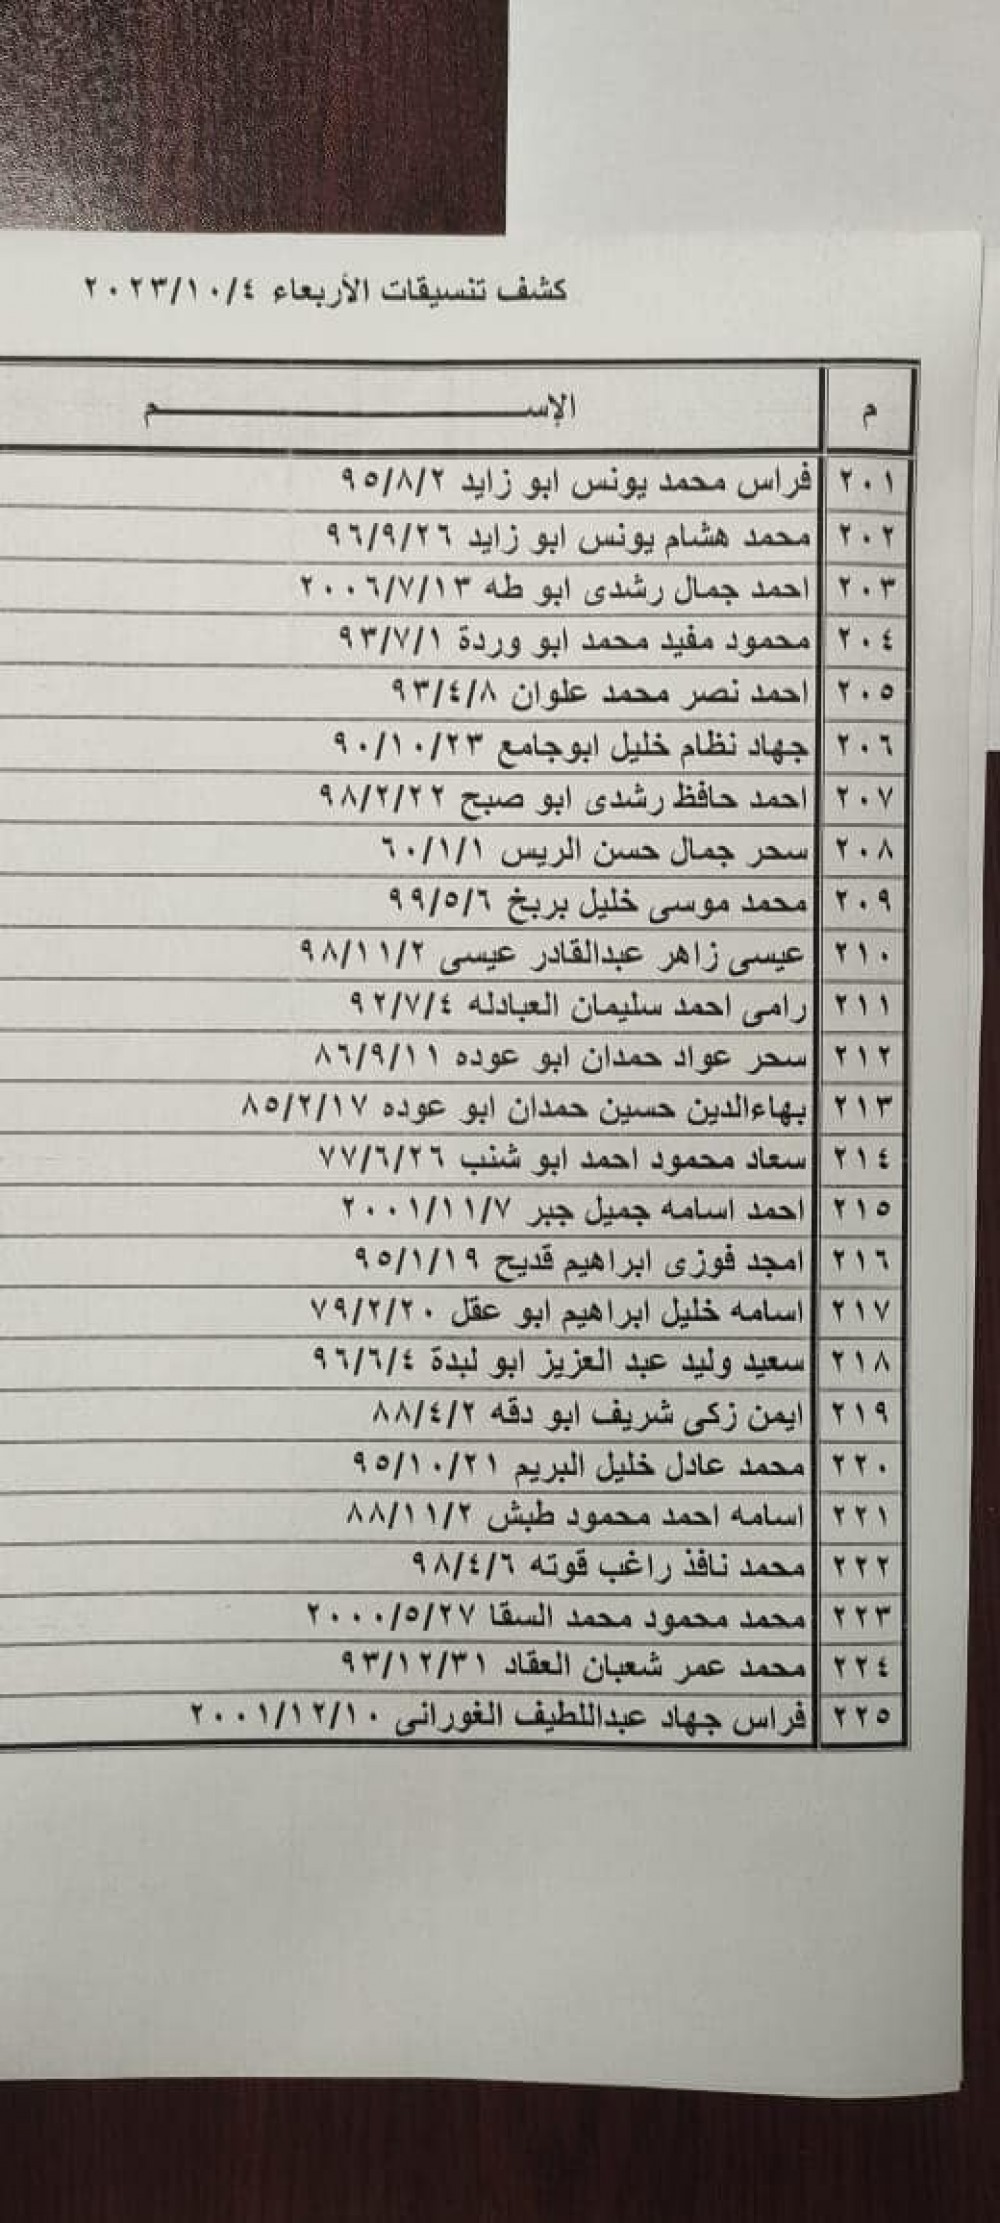 كشف تنسيقات الأربعاء ٢٠٢٣/١٠/٤
م الإسـم
٢٠١ فراس محمد يونس ابو زايد ٩٥/٨/٢
٢٠٢ محمد هشام يونس ابو زايد ٩٦/٩/٢٦
٢٠٣ احمد جمال رشدى ابو طه ٢٠٠٦/٧/١٣
٢٠٤ محمود مفيد محمد ابو وردة ٩٣/٧/١
٢٠٥ احمد نصر محمد علوان ٩٣/٤/٨
٢٠٦ جهاد نظام خليل ابوجامع ٩٠/١٠/٢٣
٢٠٧ احمد حافظ رشدى ابو صبح ٩٨/٢/٢٢
٢٠٨ سحر جمال حسن الريس ٦٠/١/١
٢٠٩ محمد موسى خليل بربخ ٩٩/٥/٦
٢١٠ عيسى زاهر عبدالقادر عيسى ٩٨/١١/٢
٢١١ رامى احمد سليمان العبادله ٩٢/٧/٤
٢١٢ سحر عواد حمدان ابو عوده ٨٦/٩/١١
٢١٣ بهاءالدين حسين حمدان ابو عوده ٨٥/٢/١٧
٢١٤ سعاد محمود احمد ابو شنب ٧٧/٦/٢٦
٢١٥ احمد اسامه جميل جبر ٢٠٠١/١١/٧
٢١٦ امجد فوزى ابراهيم قديح ٩٥/١/١٩
٢١٧ اسامه خليل ابراهيم ابو عقل ٧٩/٢/٢٠
٢١٨ سعيد وليد عبد العزيز ابو لبدة ٩٦/٦/٤
٢١٩ ايمن زكى شريف ابو دقه ٨٨/٤/٢
٢٢٠ محمد عادل خليل البريم ٩٥/١٠/٢١
٢٢١ اسامه احمد محمود طبش ٨٨/١١/٢
٢٢٢ محمد نافذ راغب قوته ٩٨/٤/٦
٢٢٣ محمد محمود محمد السقا ٢٠٠٠/٥/٢٧
٢٢٤ محمد عمر شعبان العقاد ٩٣/١٢/٣١
٢٢٥ فراس جهاد عبداللطيف الغورانى ٢٠٠١/١٢/١٠